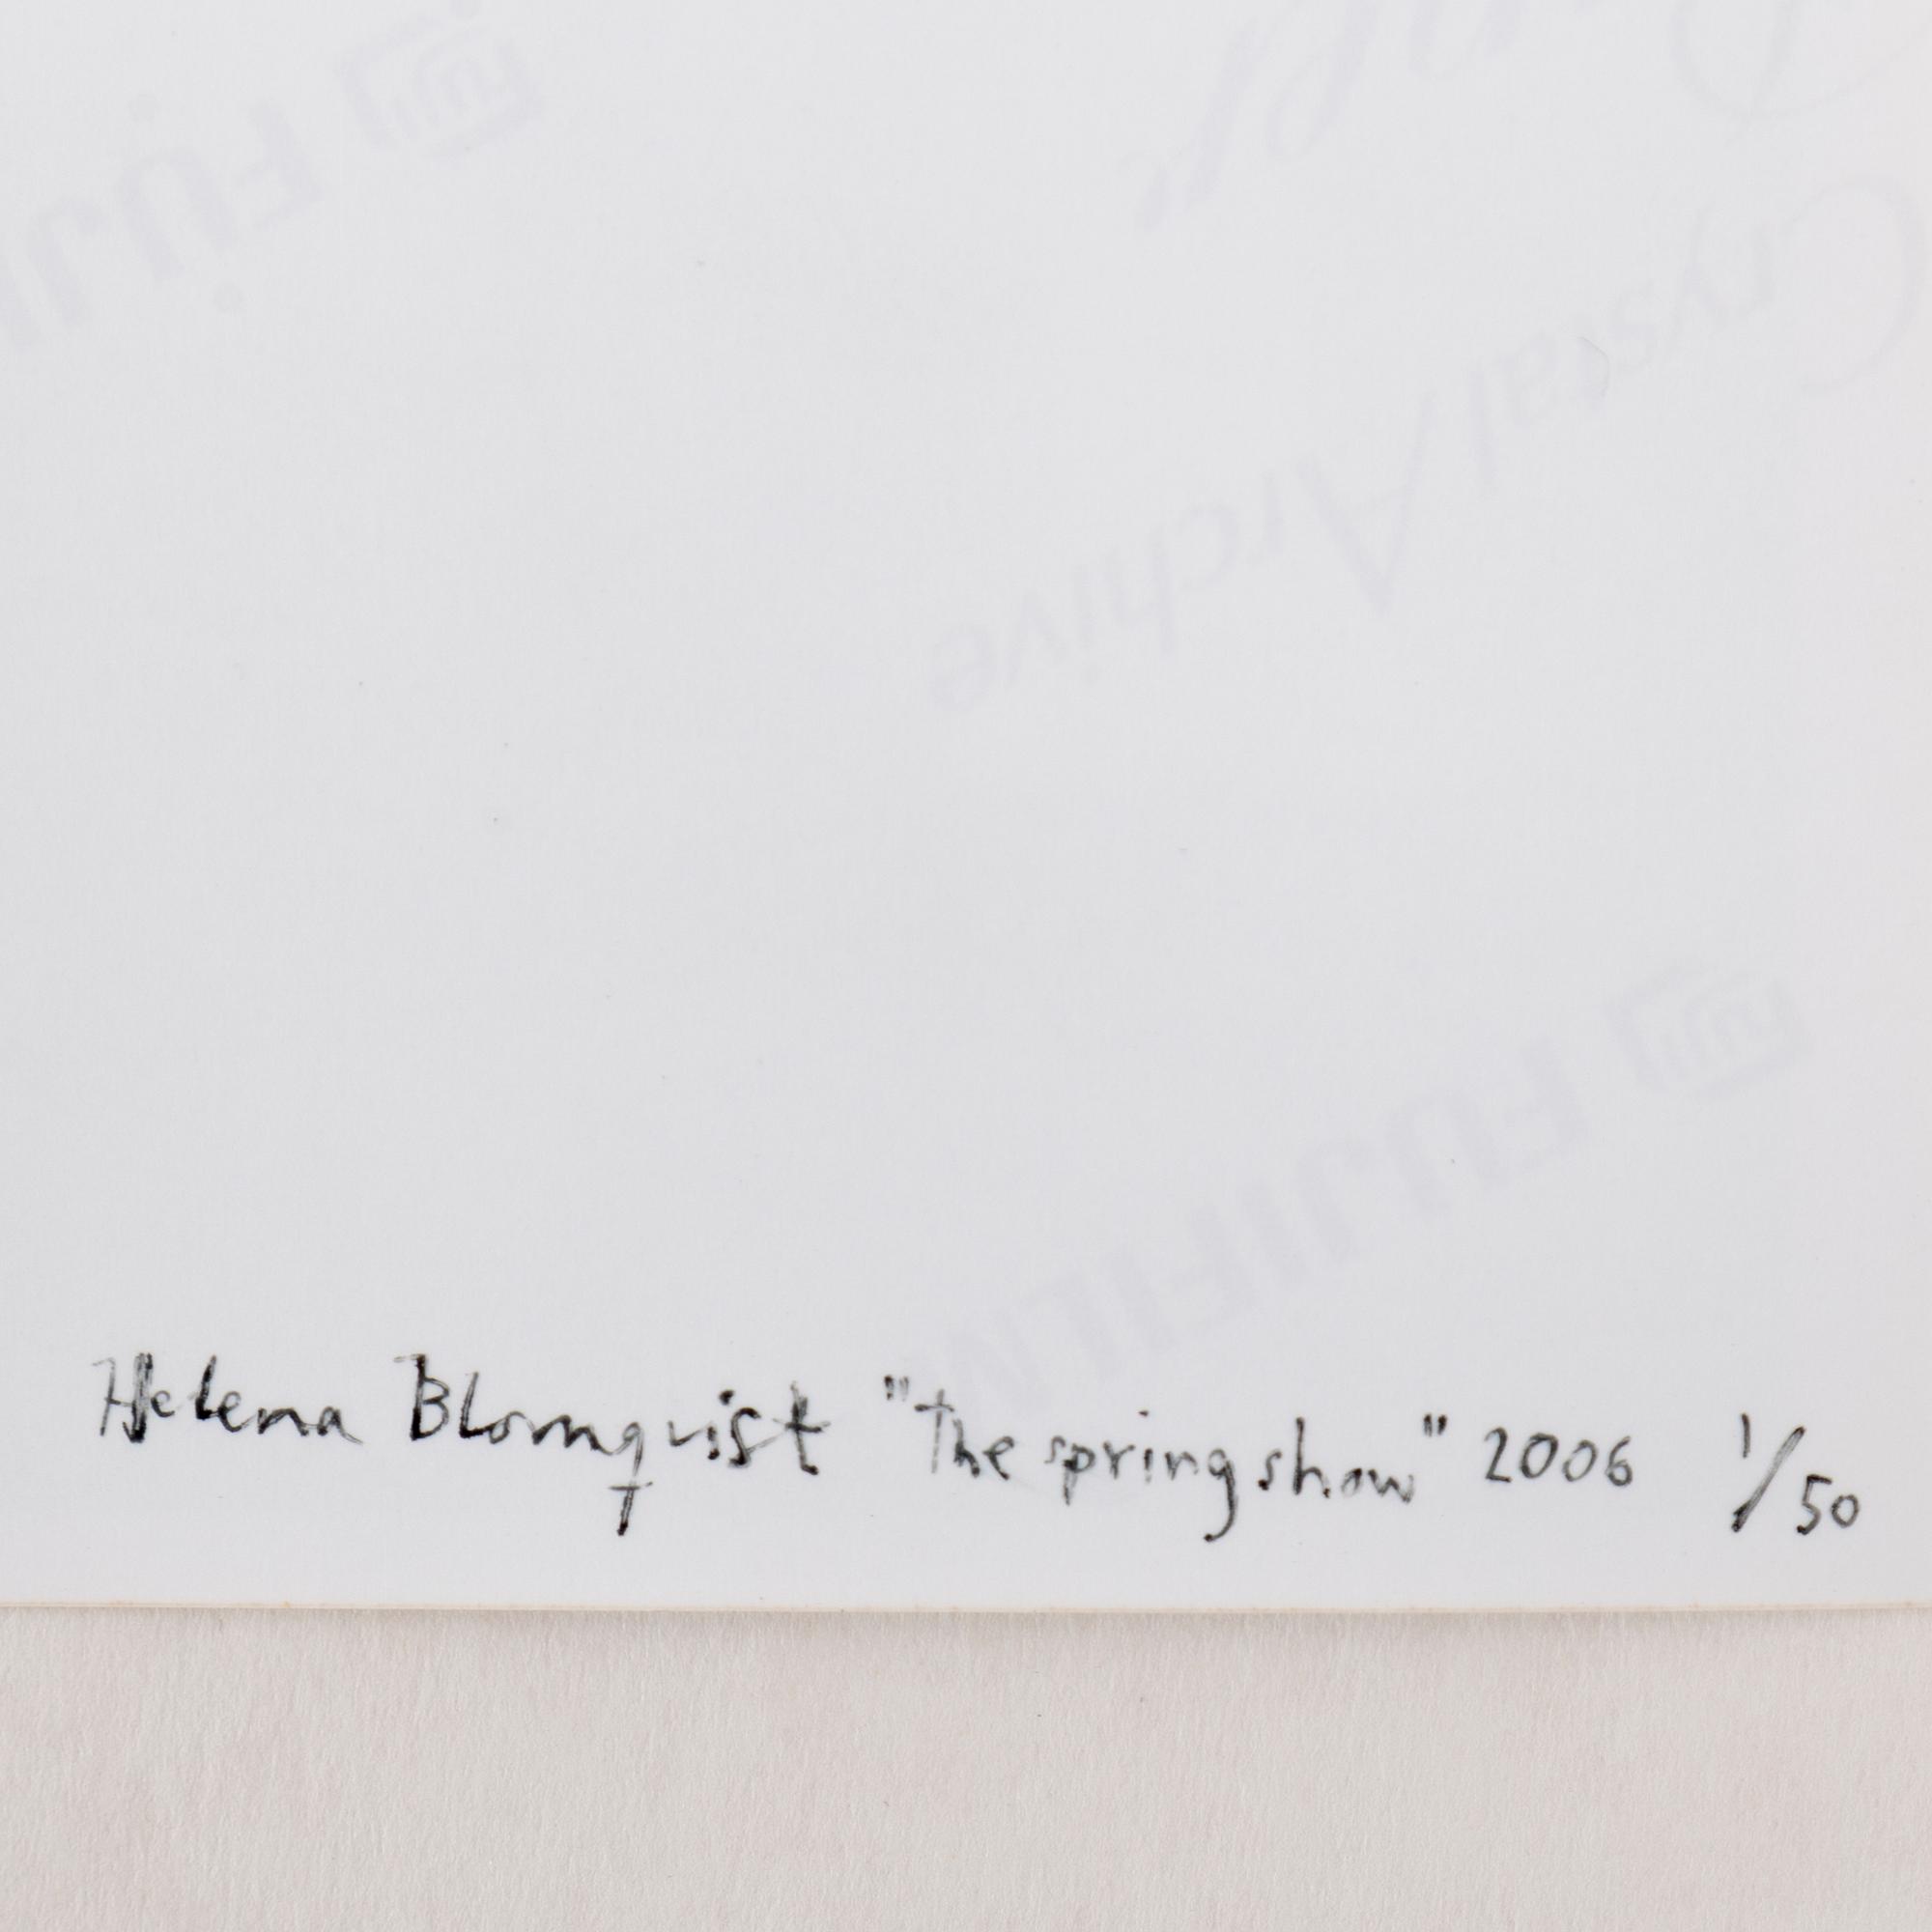 FUJI
Crystal Archive
FUJIFILM
Helena Blomqvist "The spring show" 2006 1/50